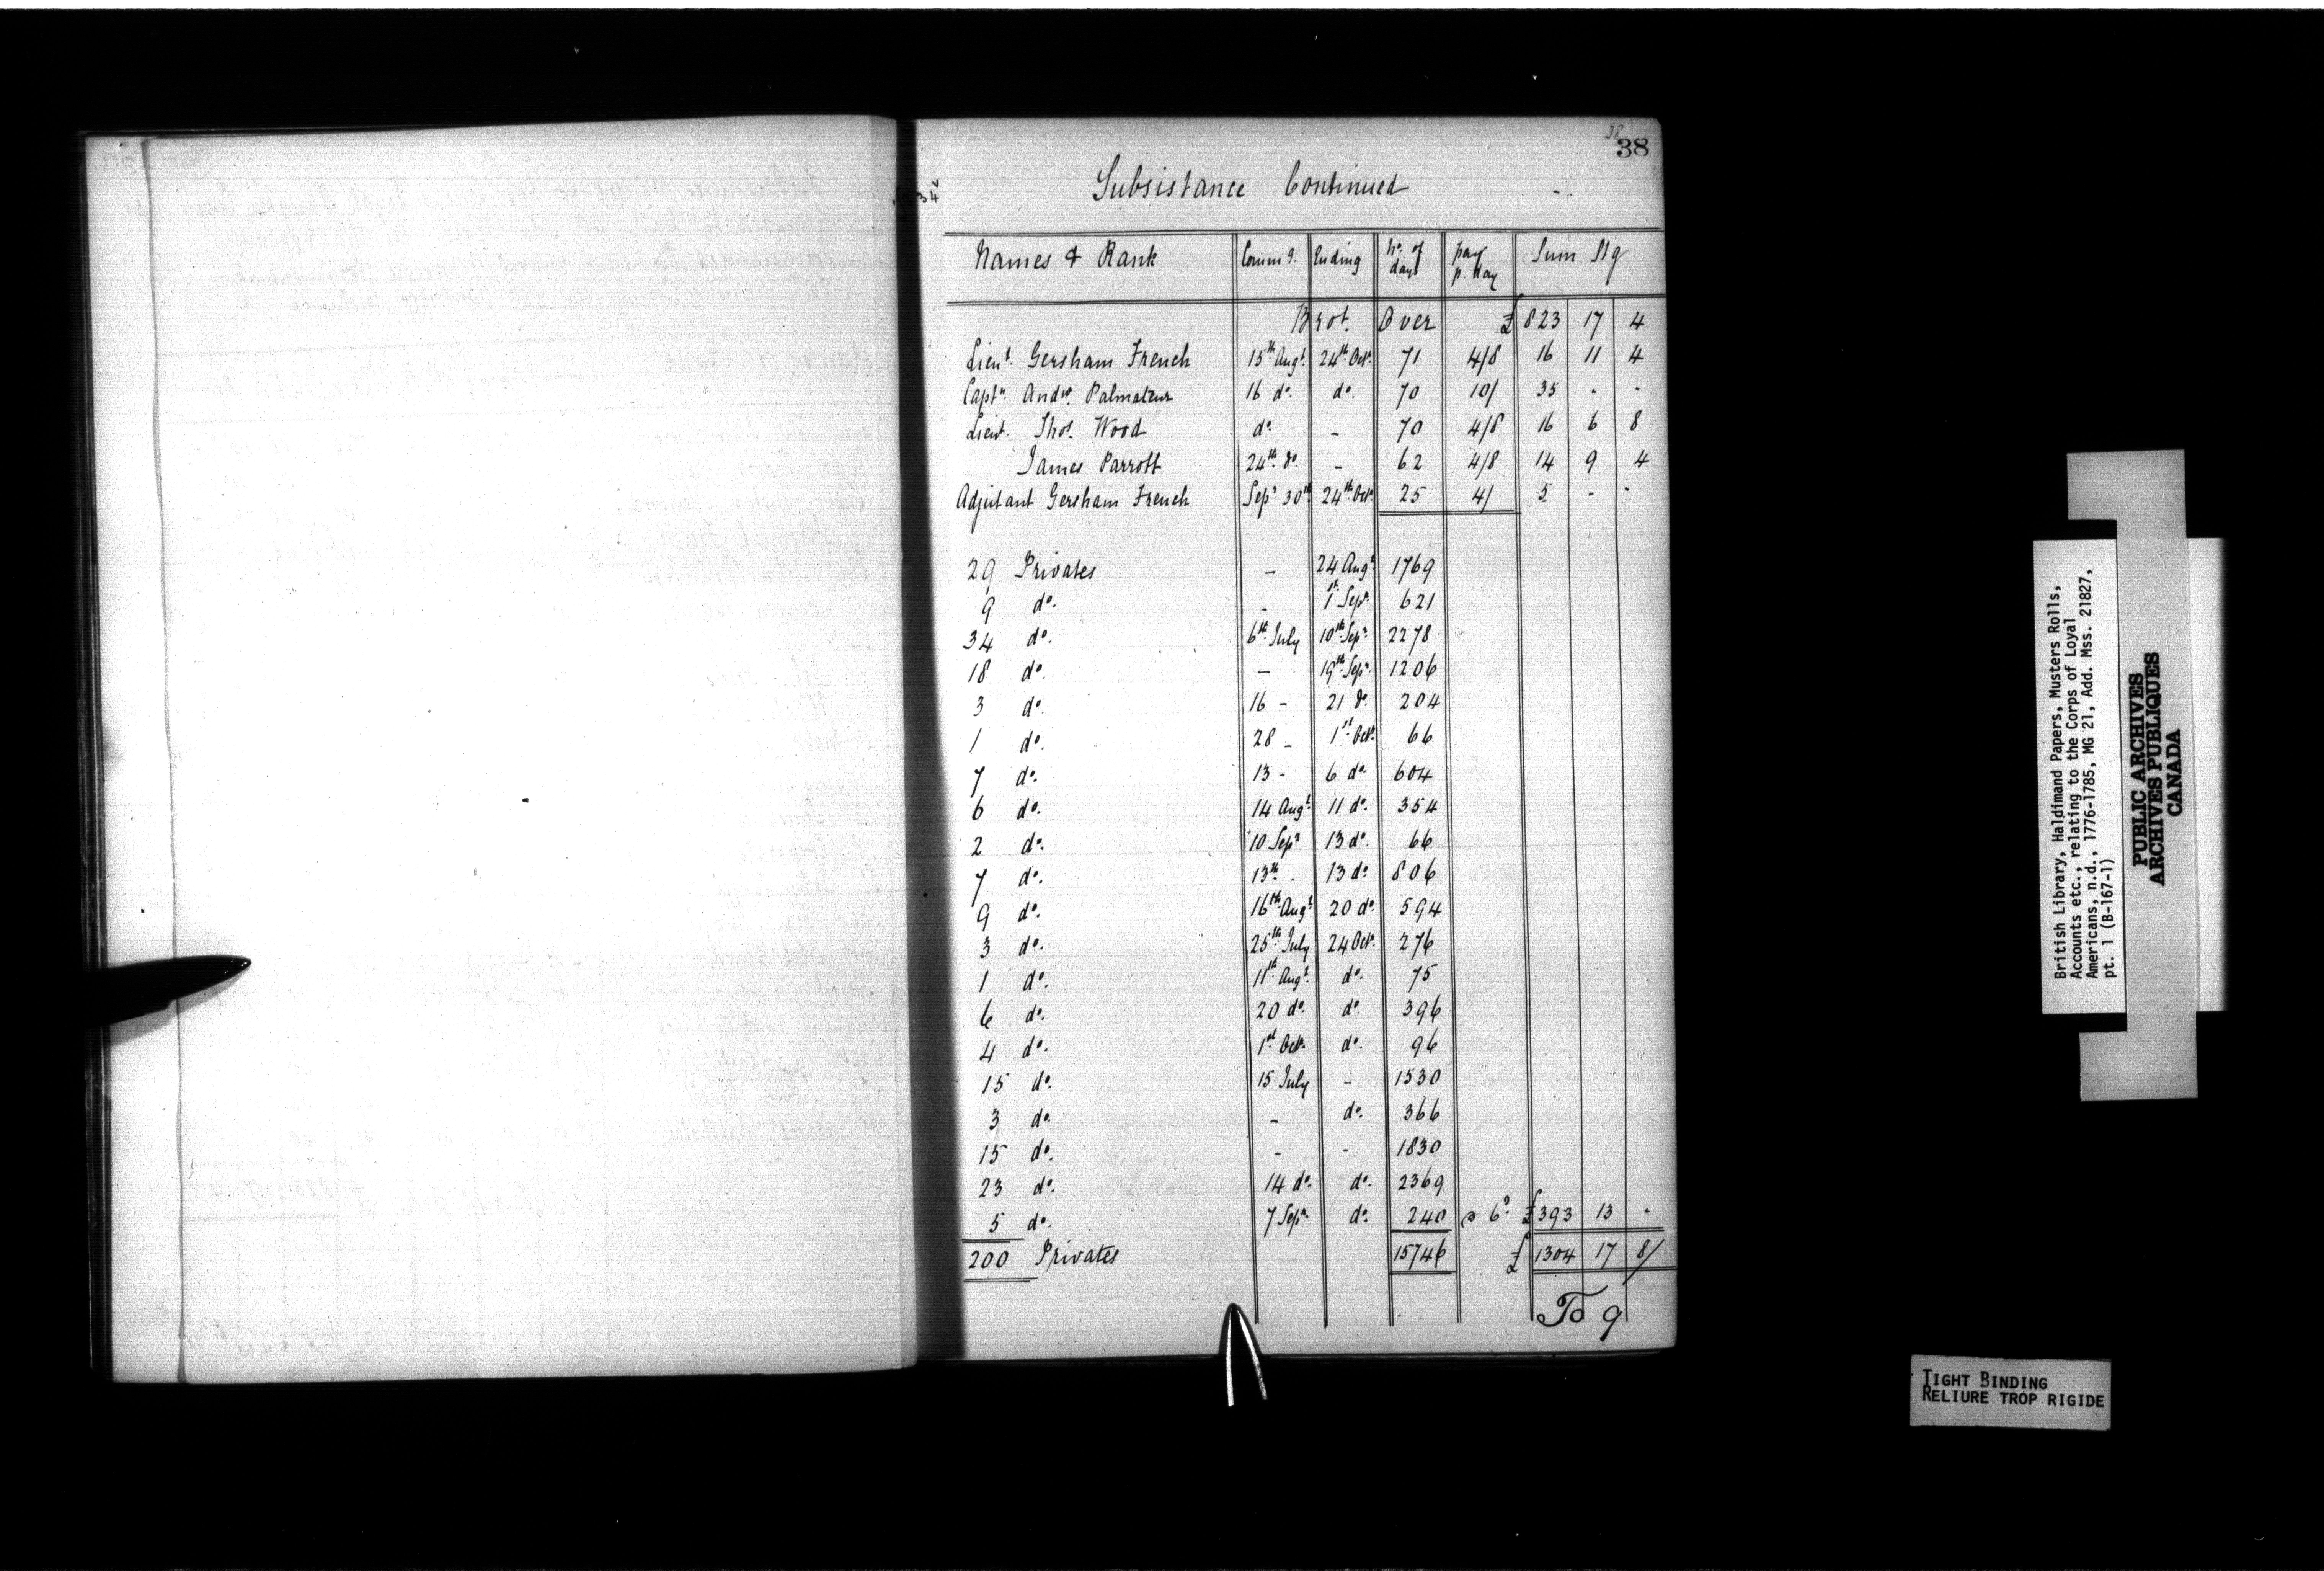 38
38
Subsistance Continued
Names & Rank Comm g. Ending No. of days pay p. day Sum Stg
Brot. Over £ 823 17 4
Lieut. Gersham French 15th Augt. 24th Octr. 71 4/8 16 11 4
Captn. Andw. Palmateur 16 do. do. 70 10/ 35 - -
Lieut. Thos. Wood do. - 70 4/8 16 6 8
James Parrott 24th do. - 62 4/8 14 9 4
Adjutant Gersham French Sepr 30th 24th Octr. 25 4/ 5 - -
29 Privates - 24 Augt. 1769
9 do. - 1st Sepr. 621
34 do. 6th July 10th Sepr. 2278
18 do. - 19th Sepr. 1206
3 do. 16 - 21 do. 204
1 do. 28 - 1st Octr. 66
7 do. 13 - 6 do. 604
6 do. 14 Augt. 11 do. 354
2 do. 10 Sepr 13 do. 66
7 do. 13th. 13 do. 806
9 do. 16th Augt. 20 do. 594
3 do. 25th July 24 Octr. 276
1 do. 11th Augt. do. 75
6 do. 20 do. do. 396
4 do. 1st Octr. do. 96
15 do. 15 July - 1530
3 do. - do. 366
15 do. - - 1830
23 do. 14 do. do. 2369
5 do. 7 Sepr. do. 240 @ 6d £ 393 13 -
200 Privates 15746 £ 1304 17 8/
British Library, Haldimand Papers, Musters Rolls,
Accounts etc., relating to the Corps of Loyal
Americans, n.d., 1776-1785, MG 21, Add. Mss. 21827,
pt. 1 (B-167-1)
PUBLIC ARCHIVES
ARCHIVES PUBLIQUES
CANADA
TIGHT BINDING
RELIURE TROP RIGIDE